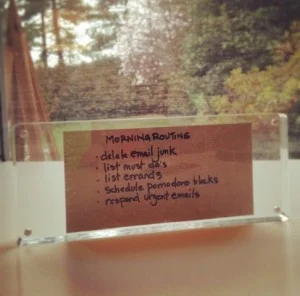 MORNING ROUTINE
• delete email junk
• list must do's
• list errands
• schedule pomodoro blocks
• respond urgent emails